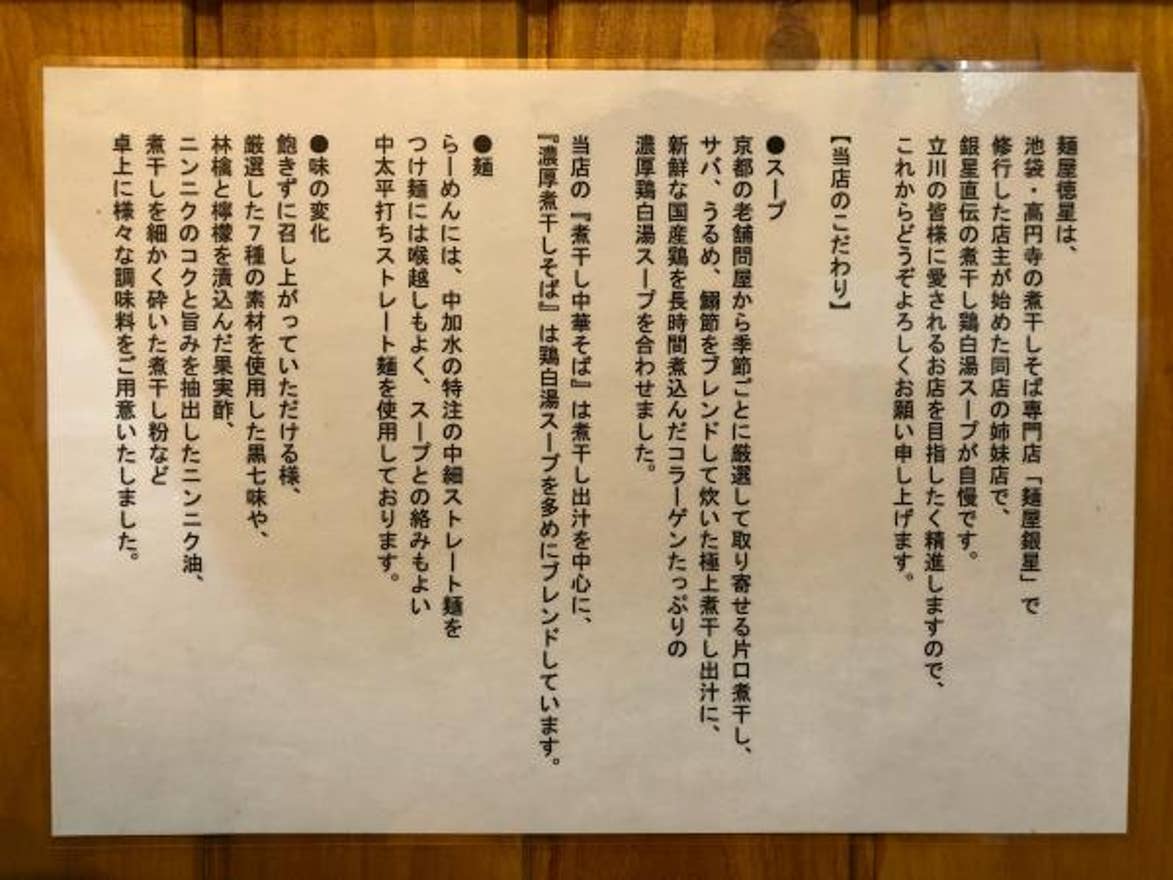 麺屋徳星は、
池袋・高円寺の煮干しそば専門店「麺屋銀星」で
修行した店主が始めた同店の姉妹店で、
銀星直伝の煮干し鶏白湯スープが自慢です。
立川の皆様に愛されるお店を目指したく精進しますので、
これからどうぞよろしくお願い申し上げます。
【当店のこだわり】
●スープ
京都の老舗問屋から季節ごとに厳選して取り寄せる片口煮干し、
サバ、うるめ、鰯節をブレンドして炊いた極上煮干し出汁に、
新鮮な国産鶏を長時間煮込んだコラーゲンたっぷりの
濃厚鶏白湯スープを合わせました。
当店の『煮干し中華そば』は煮干し出汁を中心に、
『濃厚煮干しそば』は鶏白湯スープを多めにブレンドしています。
●麺
らーめんには、中加水の特注の中細ストレート麺を
つけ麺には喉越しもよく、スープとの絡みもよい
中太平打ちストレート麺を使用しております。
●味の変化
飽きずに召し上がっていただける様、
厳選した7種の素材を使用した黒七味や、
林檎と檸檬を漬込んだ果実酢、
ニンニクのコクと旨みを抽出したニンニク油、
煮干しを細かく砕いた煮干し粉など
卓上に様々な調味料をご用意いたしました。